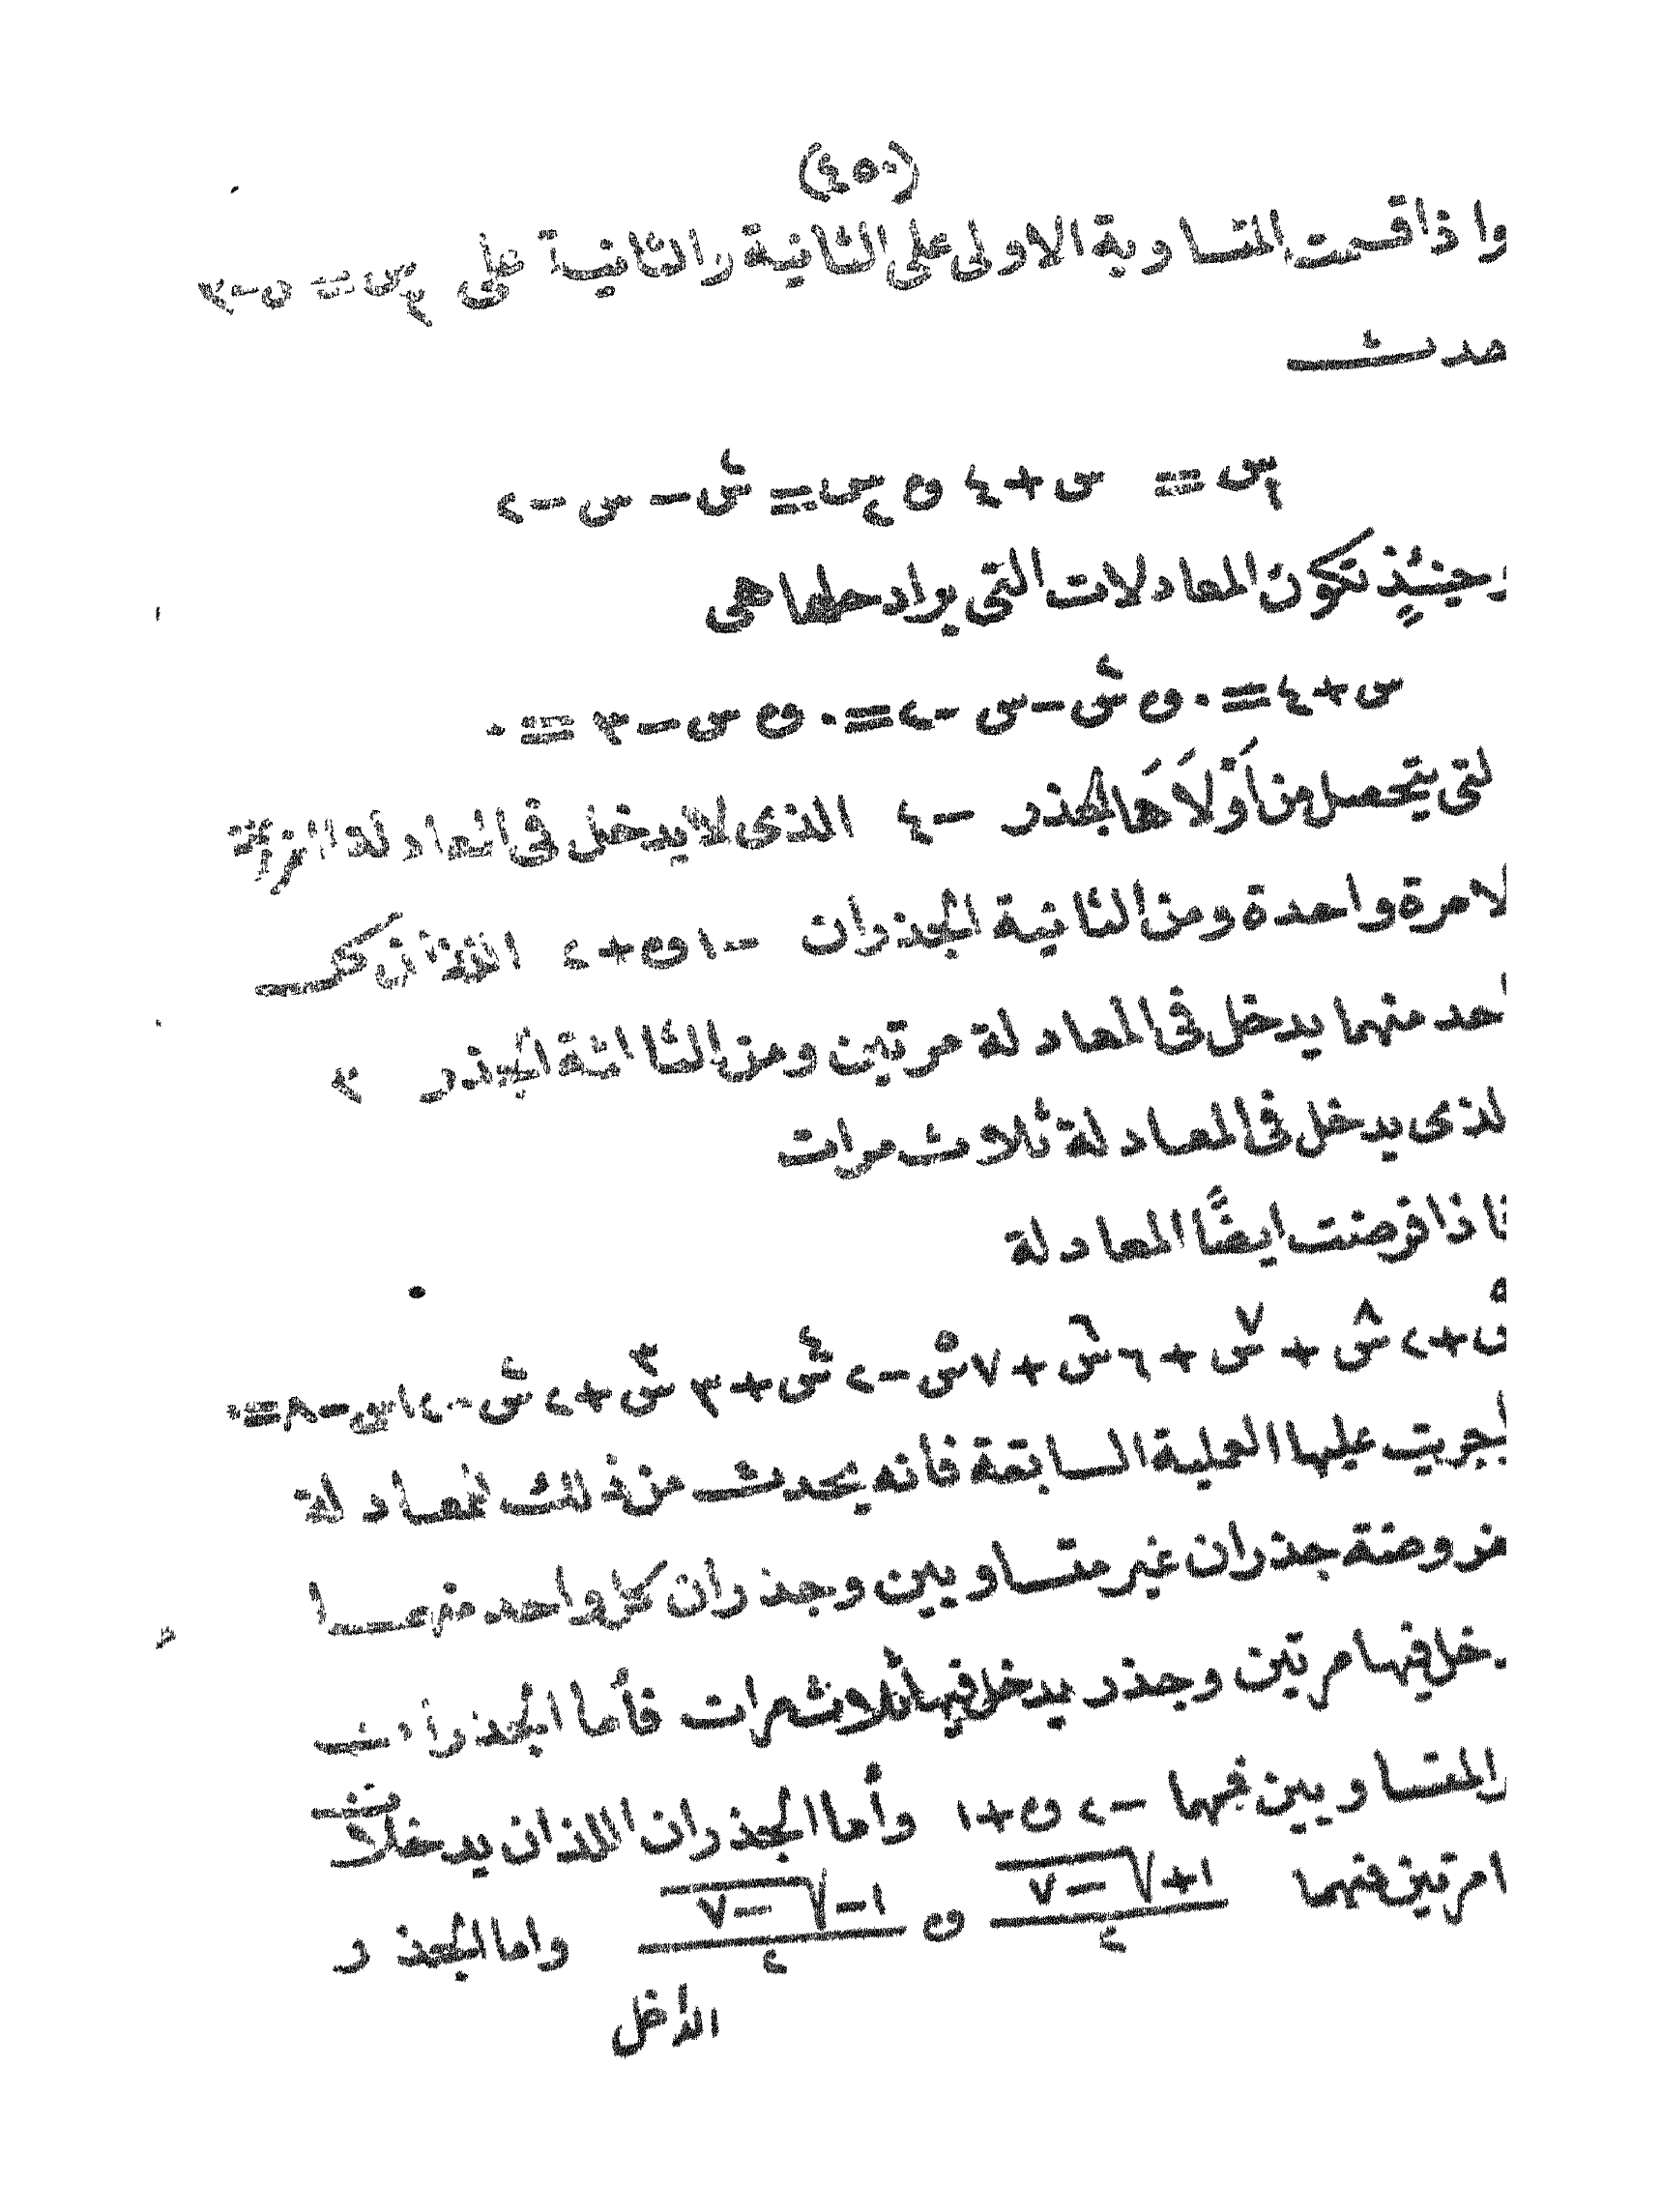 (٤٥٠)
واذا قسمت المتساوية الاولى على الثانية والثانية على س٣ = س-٣
حدث
س١ = س+٤ و س٢ = س٢ - س - ٢
وحينئذٍ تكون المعادلات التى يراد حلها هى
س+٤=٠ و س٢-س-٢=٠ و س-٣=٠
لتى يتحصل من أَوَّلَاَهَا الجذر -٤ الذى لا يدخل فى المعادلة
لا مرة واحدة ومن الثانية الجذران -١ و+٢ اللذان كل
احد منهما يدخل فى المعادلة مرتين ومن الثالثة الجذر ٣
لذى يدخل فى المعادلة ثلاث مرات
فاذا فرضت ايضًا المعادلة
س٩+٢س٨+س٧+٦س٦+٧س٥-٢س٤+٣س٣+٢س٢-١٢س-٨=٠
أجريت عليها العملية السابقة فانه يحدث من ذلك للمعادلة
لمفروضة جذران غير متساويين وجذران كل واحد منهما
يدخل فيها مرتين وجذر يدخل فيها ثلاث مرات فأما الجذران
غير المتساويين فهما -٢ و+١ وأما الجذران اللذان يدخلان
ا مرتين فهما (١+√-٧)/٢ و (١-√-٧)/٢ واما الجذر
الداخل